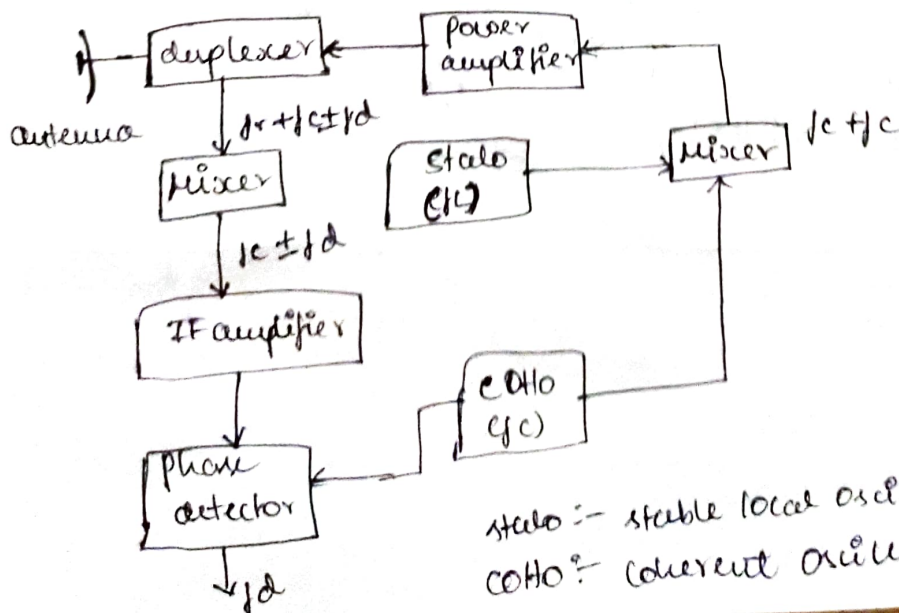 duplexer
power
amplifier
antenna
fr+fc±fd
Mixer
stalo
(fc)
Mixer
fc+fc
fc±fd
IF amplifier
COHO
(fc)
phase
detector
fd
stalo :- stable local osci
COHO :- coherent oscill